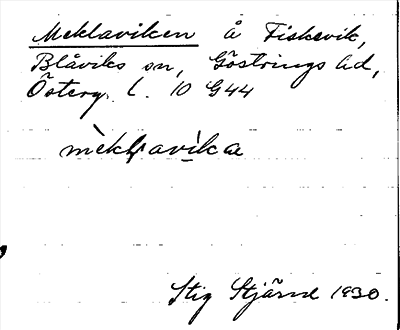 Meklaviken å Fiskevik,
Blåviks sn, Göstrings hd,
Österg. l. 10 G44
mèkḷavìka
Stig Stjärne 1930.